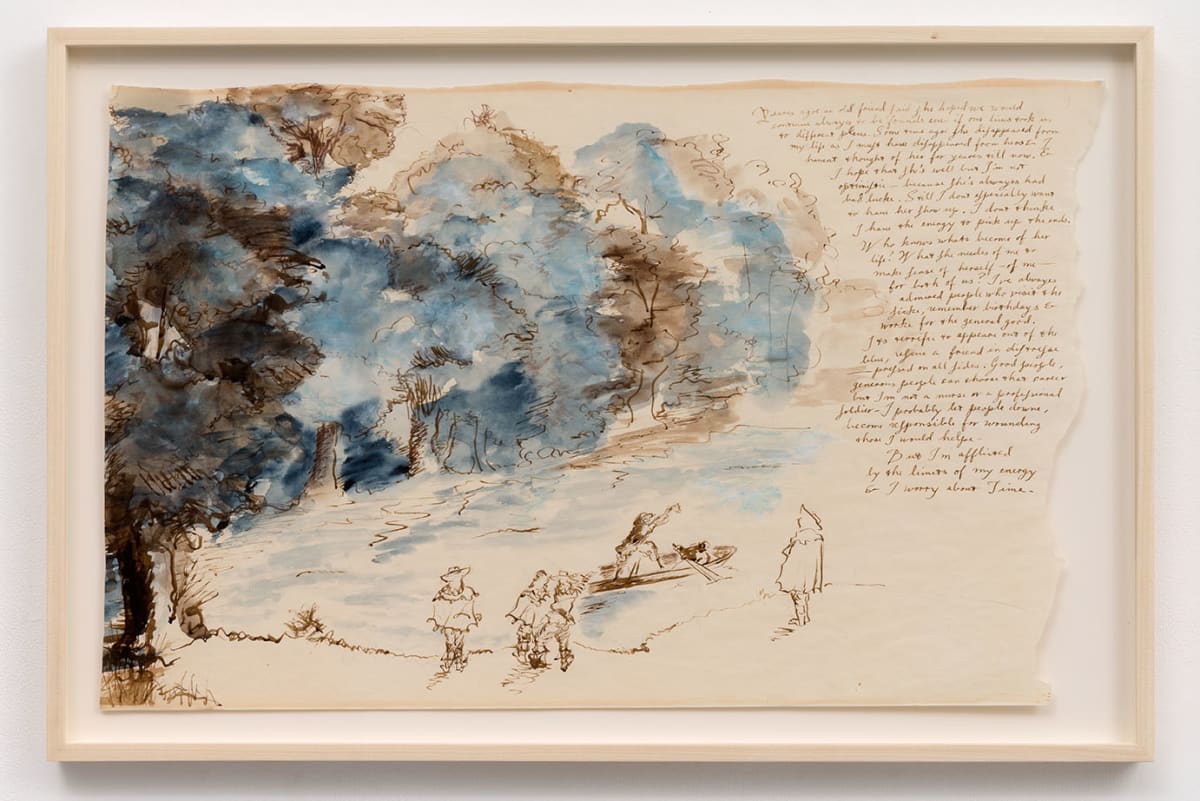 Years ago an old friend said she hoped we would
continue always to be friends even if our lives took us
to different places. Some time ago she disappeared from
my life as I must have disappeared from hers. I
havent thought of her for years till now. &
I hope that she's well but I'm not
optimistic – because she's always had
bad lucke. Still I dont especially want
to have her show up. I dont thinke
I have the energy to pick up the ends.
Who knows whats become of her
life? What she needes of me to
make sense of herself – of me –
for both of us. I've always
admired people who visit the
sicke, remember birthdays &
worke for the general good.
Its terrific to appear out of the
blue, rescue a friend in distresse
pressed on all sides. Good people,
generous people can choose that career
but I'm not a nurse or a professional
soldier – I probably let people downe,
become responsible for wounding
those I would helpe –
But I'm afflicted
by the limits of my energy
& I worry about Time –